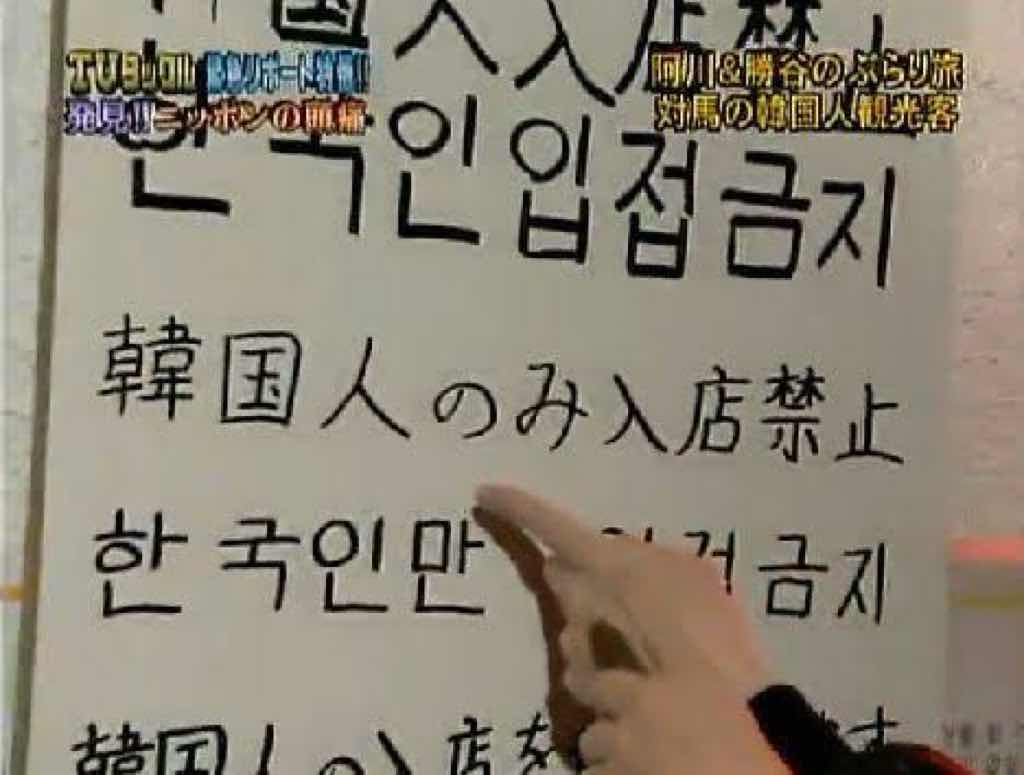 国人入店禁
阿川&勝谷のぶらり旅
発見!!ニッポンの
対馬の韓国人観光客
한국인입접금지
韓国人のみ入店禁止
한국인만 금지
韓国人の入店を す